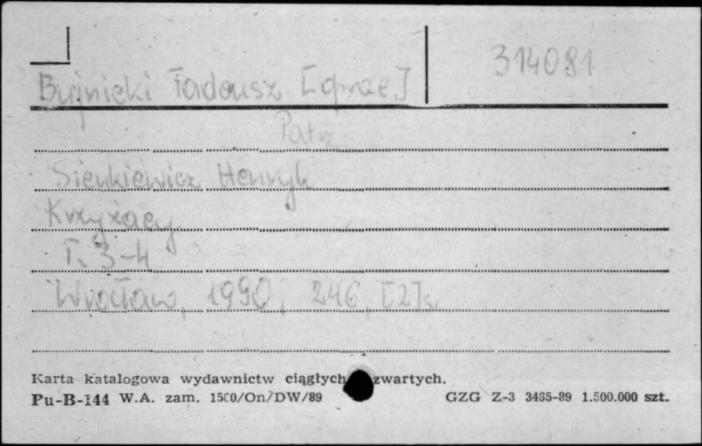 314081
Bujnicki Tadeusz [oprac.]
Patrz
Sienkiewicz Henryk
Krzyżacy
T. 3-4
Wrocław, 1990, 246, [2] s.
Karta katalogowa wydawnictw ciągłych zwartych.
Pu-B-144 W.A. zam. 1500/On/DW/89 GZG Z-3 3485-89 1.500.000 szt.